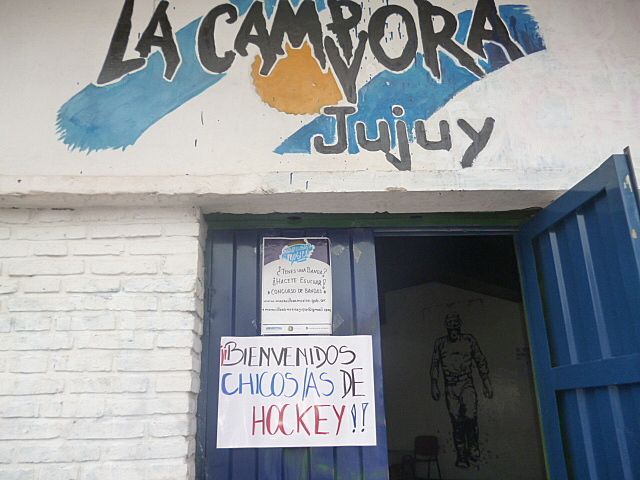 LA CAMPORA
Jujuy
¿TENES UNA BANDA?
¡HACETE ESCUCHAR!
CONCURSO DE BANDAS
¡¡BIENVENIDOS
CHICOS/AS DE
HOCKEY!!